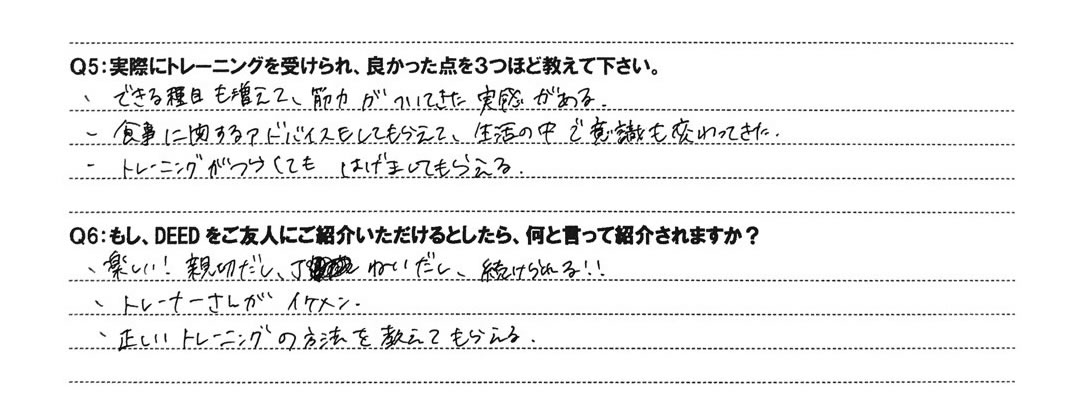 Q5:実際にトレーニングを受けられ、良かった点を3つほど教えて下さい。
、できる種目も増えて、筋力がついてきた実感がある。
- 食事に関するアドバイスをしてもらえて、生活の中で意識も変わってきた。
- トレーニングがつらくても はげましてもらえる。
Q6:もし、DEEDをご友人にご紹介いただけるとしたら、何と言って紹介されますか？
、楽しい！親切だし、ていねいだし、続けられる！！
、トレーナーさんがイケメン。
、正しいトレーニングの方法を教えてもらえる。